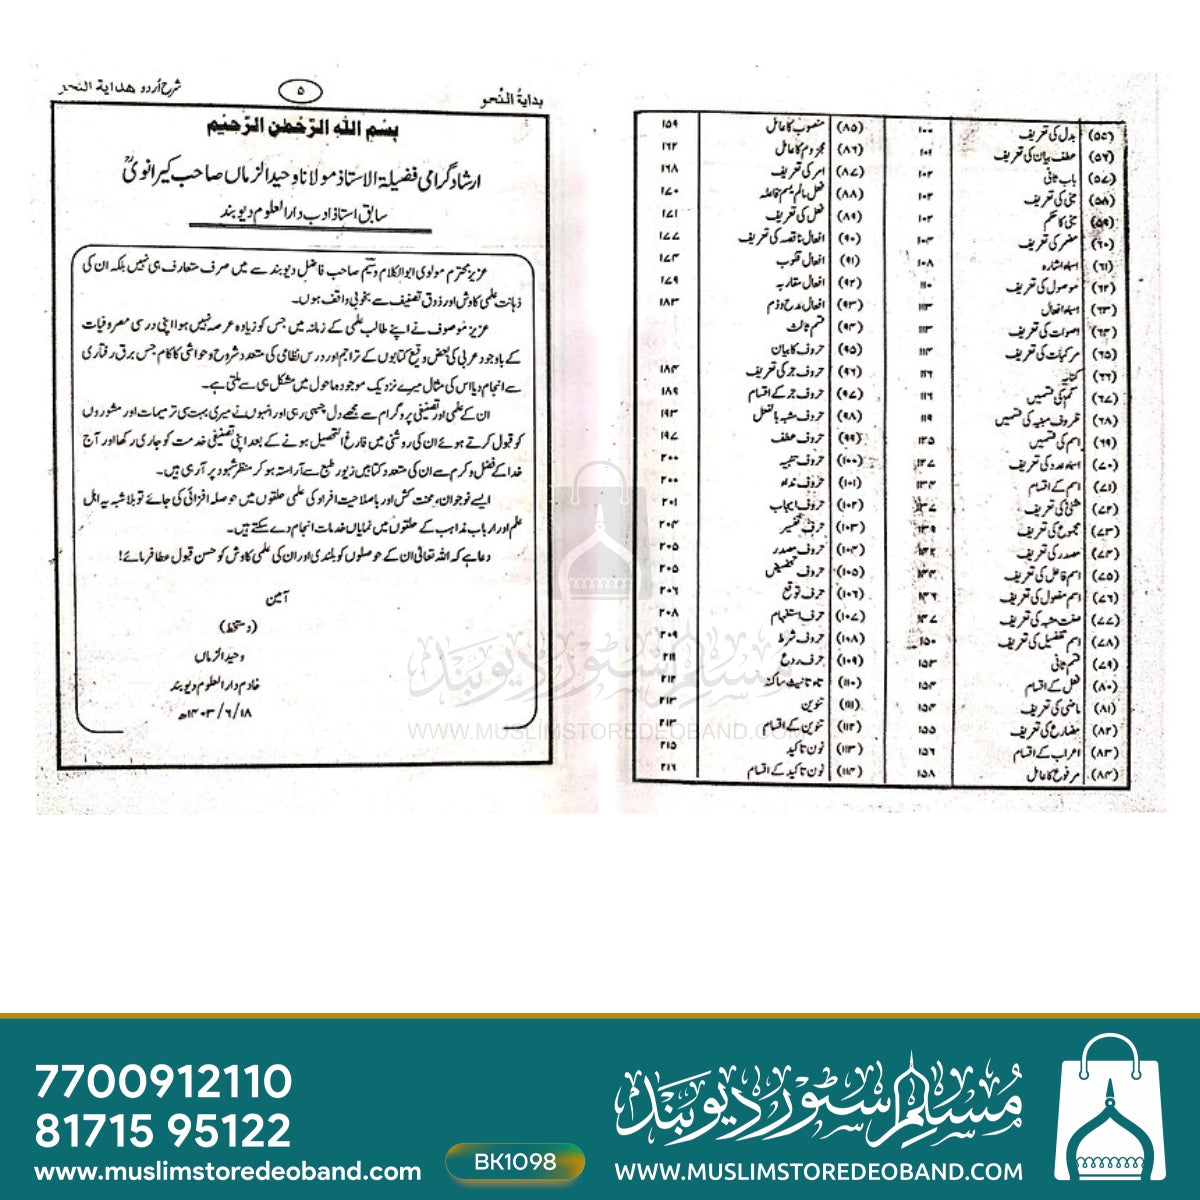 شرح اُردو هداية النحو
۵
بدایۃُ النحو
بِسْمِ اللّٰهِ الرَّحْمٰنِ الرَّحِیْمِ
ارشاد گرامی فضیلۃ الاستاذ مولانا وحید الزماں صاحب کیرانویؒ
سابق استاذ ادب دارالعلوم دیوبند
عزیز محترم مولوی ابوالکلام وسیم صاحب فاضل دیوبند سے میں صرف متعارف ہی نہیں بلکہ ان کی
ذہانت علمی کاوش اور ذوق تصنیف سے بخوبی واقف ہوں۔
عزیز موصوف نے اپنے طالب علمی کے زمانہ میں جس کو زیادہ عرصہ نہیں ہوا اپنی درسی مصروفیات
کے باوجود عربی کی بعض وقیع کتابوں کے تراجم اور درس نظامی کی متعدد شروح و حواشی کا کام جس برق رفتاری
سے انجام دیا اس کی مثال میرے نزدیک موجودہ ماحول میں مشکل ہی سے ملتی ہے۔
ان کے علمی اور تصنیفی پروگرام سے مجھے دل چسپی رہی اور انہوں نے میری بہت سی ترمیمات اور مشوروں
کو قبول کرتے ہوئے ان کی روشنی میں فارغ التحصیل ہونے کے بعد اپنی تصنیفی خدمت کو جاری رکھا اور آج
خدا کے فضل و کرم سے ان کی متعدد کتابیں زیور طبع سے آراستہ ہو کر منظر شہود پر آرہی ہیں۔
ایسے نوجوان، محنت کش اور باصلاحیت افراد کی علمی حلقوں میں حوصلہ افزائی کی جائے تو بلاشبہ یہ اہل
علم اور ارباب مذاہب کے حلقوں میں نمایاں خدمات انجام دے سکتے ہیں۔
دعا ہے کہ اللہ تعالیٰ ان کے حوصلوں کو بلندی اور ان کی علمی کاوش کو حسن قبول عطا فرمائے!
آمین
(دستخط)
وحید الزماں
خادم دارالعلوم دیوبند
۱۴۰۳/۶/۱۸ھ
(۵۵) بدل کی تعریف ۱۰۰ (۸۵) منصوب کا عامل ۱۵۹
(۵۶) عطف بیان کی تعریف ۱۰۱ (۸۶) مجزوم کا عامل ۱۶۲
(۵۷) باب ثانی ۱۰۲ (۸۷) امر کی تعریف ۱۶۸
(۵۸) مبنی کی تعریف ۱۰۲ (۸۸) فعل مالم یسم فاعلہ ۱۷۰
(۵۹) مبنی کا حکم ۱۰۲ (۸۹) فعل کی تعریف ۱۷۱
(۶۰) مضمر کی تعریف ۱۰۳ (۹۰) افعال ناقصہ کی تعریف ۱۷۷
(۶۱) اسماء اشارہ ۱۰۸ (۹۱) افعال قلوب ۱۷۴
(۶۲) موصول کی تعریف ۱۱۰ (۹۲) افعال مقاربہ ۱۷۹
(۶۳) اسماء افعال ۱۱۳ (۹۳) افعال مدح و ذم ۱۸۳
(۶۴) اصوات کی تعریف ۱۱۳ (۹۴) قسم ثالث
(۶۵) مرکبات کی تعریف ۱۱۴ (۹۵) حروف کا بیان
(۶۶) کنایہ ۱۱۶ (۹۶) حروف جر کی تعریف ۱۸۴
(۶۷) کم کی قسمیں ۱۱۶ (۹۷) حروف جر کے اقسام ۱۸۹
(۶۸) ظروف مبنیہ کی قسمیں ۱۱۹ (۹۸) حروف مشبہ بالفعل ۱۹۳
(۶۹) اسم کی قسمیں ۱۲۵ (۹۹) حروف عطف ۱۹۷
(۷۰) اسماء عدد کی تعریف (۱۰۰) حروف تنبیہ ۲۰۰
(۷۱) اسم کے اقسام ۱۳۴ (۱۰۱) حروف نداء ۲۰۰
(۷۲) مثنی کی تعریف (۱۰۲) حروف ایجاب ۲۰۱
(۷۳) مجموع کی تعریف ۱۳۹ (۱۰۳) حرف تفسیر ۲۰۴
(۷۴) مصدر کی تعریف ۱۴۲ (۱۰۴) حروف مصدر ۲۰۵
(۷۵) اسم فاعل کی تعریف ۱۴۴ (۱۰۵) حروف تحضیض ۲۰۵
(۷۶) اسم مفعول کی تعریف ۱۴۶ (۱۰۶) حرف توقع ۲۰۶
(۷۷) صفت مشبہ کی تعریف ۱۴۷ (۱۰۷) حرف استفہام ۲۰۸
(۷۸) اسم تفضیل کی تعریف ۱۵۰ (۱۰۸) حروف شرط ۲۰۹
(۷۹) قسم ثانی ۱۵۳ (۱۰۹) حرف ردع ۲۱۱
(۸۰) فعل کے اقسام ۱۵۴ (۱۱۰) تاء تانیث ساکنہ ۲۱۲
(۸۱) ماضی کی تعریف ۱۵۴ (۱۱۱) تنوین ۲۱۳
(۸۲) مضارع کی تعریف ۱۵۵ (۱۱۲) تنوین کے اقسام ۲۱۳
(۸۳) اعراب کے اقسام ۱۵۶ (۱۱۳) نون تاکید ۲۱۵
(۸۴) مرفوع کا عامل ۱۵۸ (۱۱۴) نون تاکید کے اقسام ۲۱۶
مسلم سٹور دیوبند
WWW.MUSLIMSTOREDEOBAND.COM
7700912110
81715 95122
www.muslimstoredeoband.com
BK1098
مسلم سٹور دیوبند
WWW.MUSLIMSTOREDEOBAND.COM